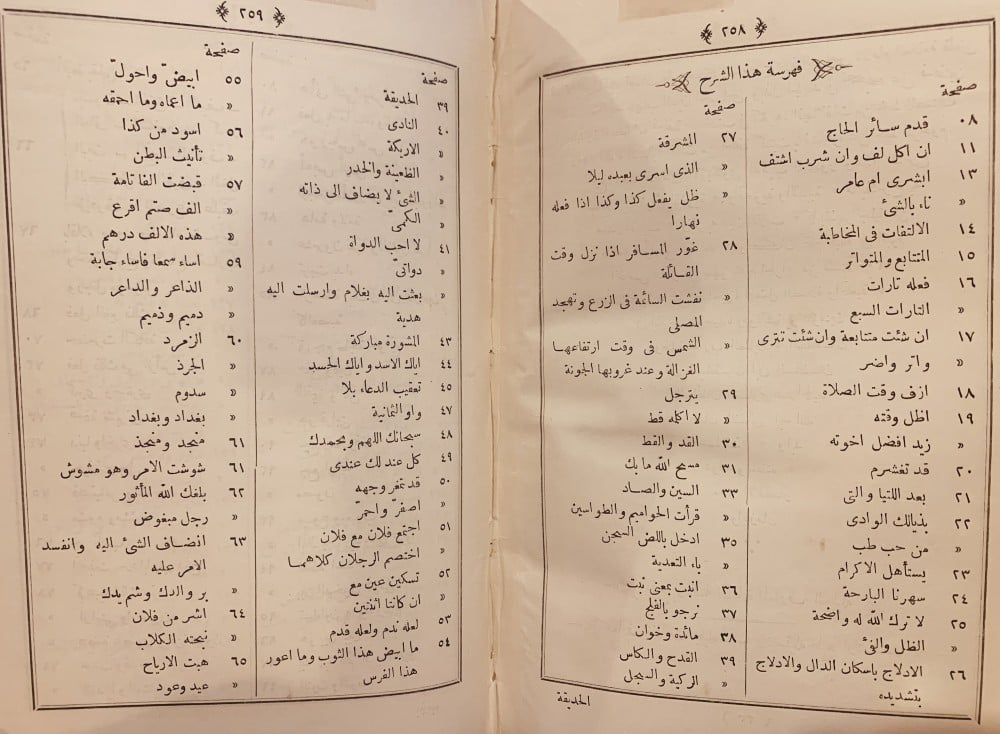 ٢٥٨
فهرسة هذا الشرح
صفحة
٠٨ قدم سائر الحاج
١١ ان اكل لف وان شرب اشتف
١٣ ابشرى ام عامر
« ناء بالشئ
١٤ الالتفات فى المخاطبة
١٥ المتتابع والمتواتر
١٦ فعله تارات
« التارات السبع
١٧ ان شئت متتابعة وان شئت تترى
« واتر واضر
١٨ ازف وقت الصلاة
١٩ اظل وقته
« زيد افضل اخوته
٢٠ قد تغشرم
٢١ بعد اللتيا والتى
٢٢ بذيالك الوادى
« من حب طب
٢٣ يستأهل الاكرام
٢٤ سهرنا البارحة
٢٥ لا ترك الله له واضحة
« الظل والفئ
٢٦ الادلاج باسكان الدال والادلاج
بتشديده
صفحة
٢٧ المشرقة
« الذى اسرى بعبده ليلا
« ظل يفعل كذا وكذا اذا فعله
نهارا
٢٨ غوّر المسافر اذا نزل وقت
القائلة
« نفشت السائمة فى الزرع وتهجد
المصلى
« الشمس فى وقت ارتفاعها
الغزالة وعند غروبها الجونة
٢٩ يترجل
« لا اكله قط
٣٠ القد والقط
٣١ مسح الله ما بك
٣٣ السين والصاد
« قرأت الحواميم والطواسين
٣٥ ادخل باللص السجن
« باء التعدية
٣٦ انبت بمعنى نبت
٣٧ نرجو بالفلج
٣٨ مائدة وخوان
٣٩ القدح والكاس
« الركية والسجل
الحديقة
٢٥٩
صفحة
٣٩ الحديقة
٤٠ النادى
« الاريكة
« الظعينة والخدر
« الشئ لا يضاف الى ذاته
« الكمىّ
٤١ لا احب الدواة
« دواتىّ
« بعثت اليه بغلام وارسلت اليه
هدية
٤٣ المشورة مباركة
٤٤ اياك الاسد واياك الحسد
٤٥ تعقيب الدعاء بلا
٤٧ واو الثمانية
٤٨ سبحانك اللهم وبحمدك
٤٩ كل عند لك عندى
٥٠ قد تمغر وجهه
« اصفرّ واحمرّ
٥١ اجتمع فلان مع فلان
« اختصم الرجلان كلاهما
٥٢ تسكين عين مع
« ان كانتا اثنتين
٥٣ لعله ندم ولعله قدم
٥٤ ما ابيض هذا الثوب وما اعور
هذا الفرس
صفحة
٥٥ ابيضّ واحولّ
« ما اعماه وما احمقه
٥٦ اسود من كذا
« تأنيث البطن
٥٧ قبضت الفا تامة
« الف صتم اقرع
« هذه الالف درهم
٥٩ اساء سمعا فاساء جابة
« الذاعر والداعر
« دميم وذميم
٦٠ الزمرد
« الجرذ
« سدوم
« بغداد وبغداد
٦١ منجد ومنجذ
٦١ شوشت الامر وهو مشوش
٦٢ بلغك الله المأثور
« رجل مبغوض
٦٣ انضاف الشئ اليه وانفسد
الامر عليه
« بر والدك وشم يدك
٦٤ اشر من فلان
« نبحته الكلاب
٦٥ هبت الارياح
« عيد وعود